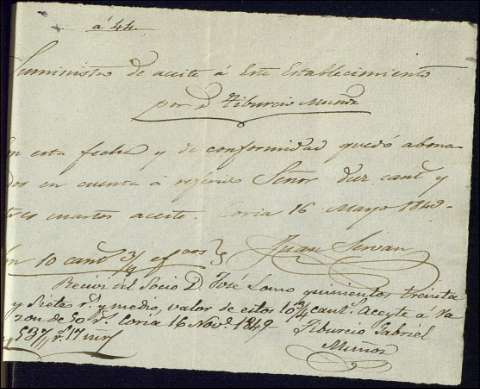 á 44
Suministro de aceite á Este Establecimiento
por D. Tiburcio Muñoz
En esta fecha y de conformidad quedó abona-
dos en cuenta á referido Señor diez cant. y
tres cuartos aceite. Coria 16 Mayo 1849.
Son 10 cant. 3/4
Juan Servan
Recivi del Socio D. José Lomo quinientos treinta
y siete r.s y medio, valor de estos 10 3/4 cant. Aceyte a Ra
zon de 50 r.s Coria 16 Nov.e 1849
Tiburcio Gabriel
537 r.s 17 mrs
Muñoz